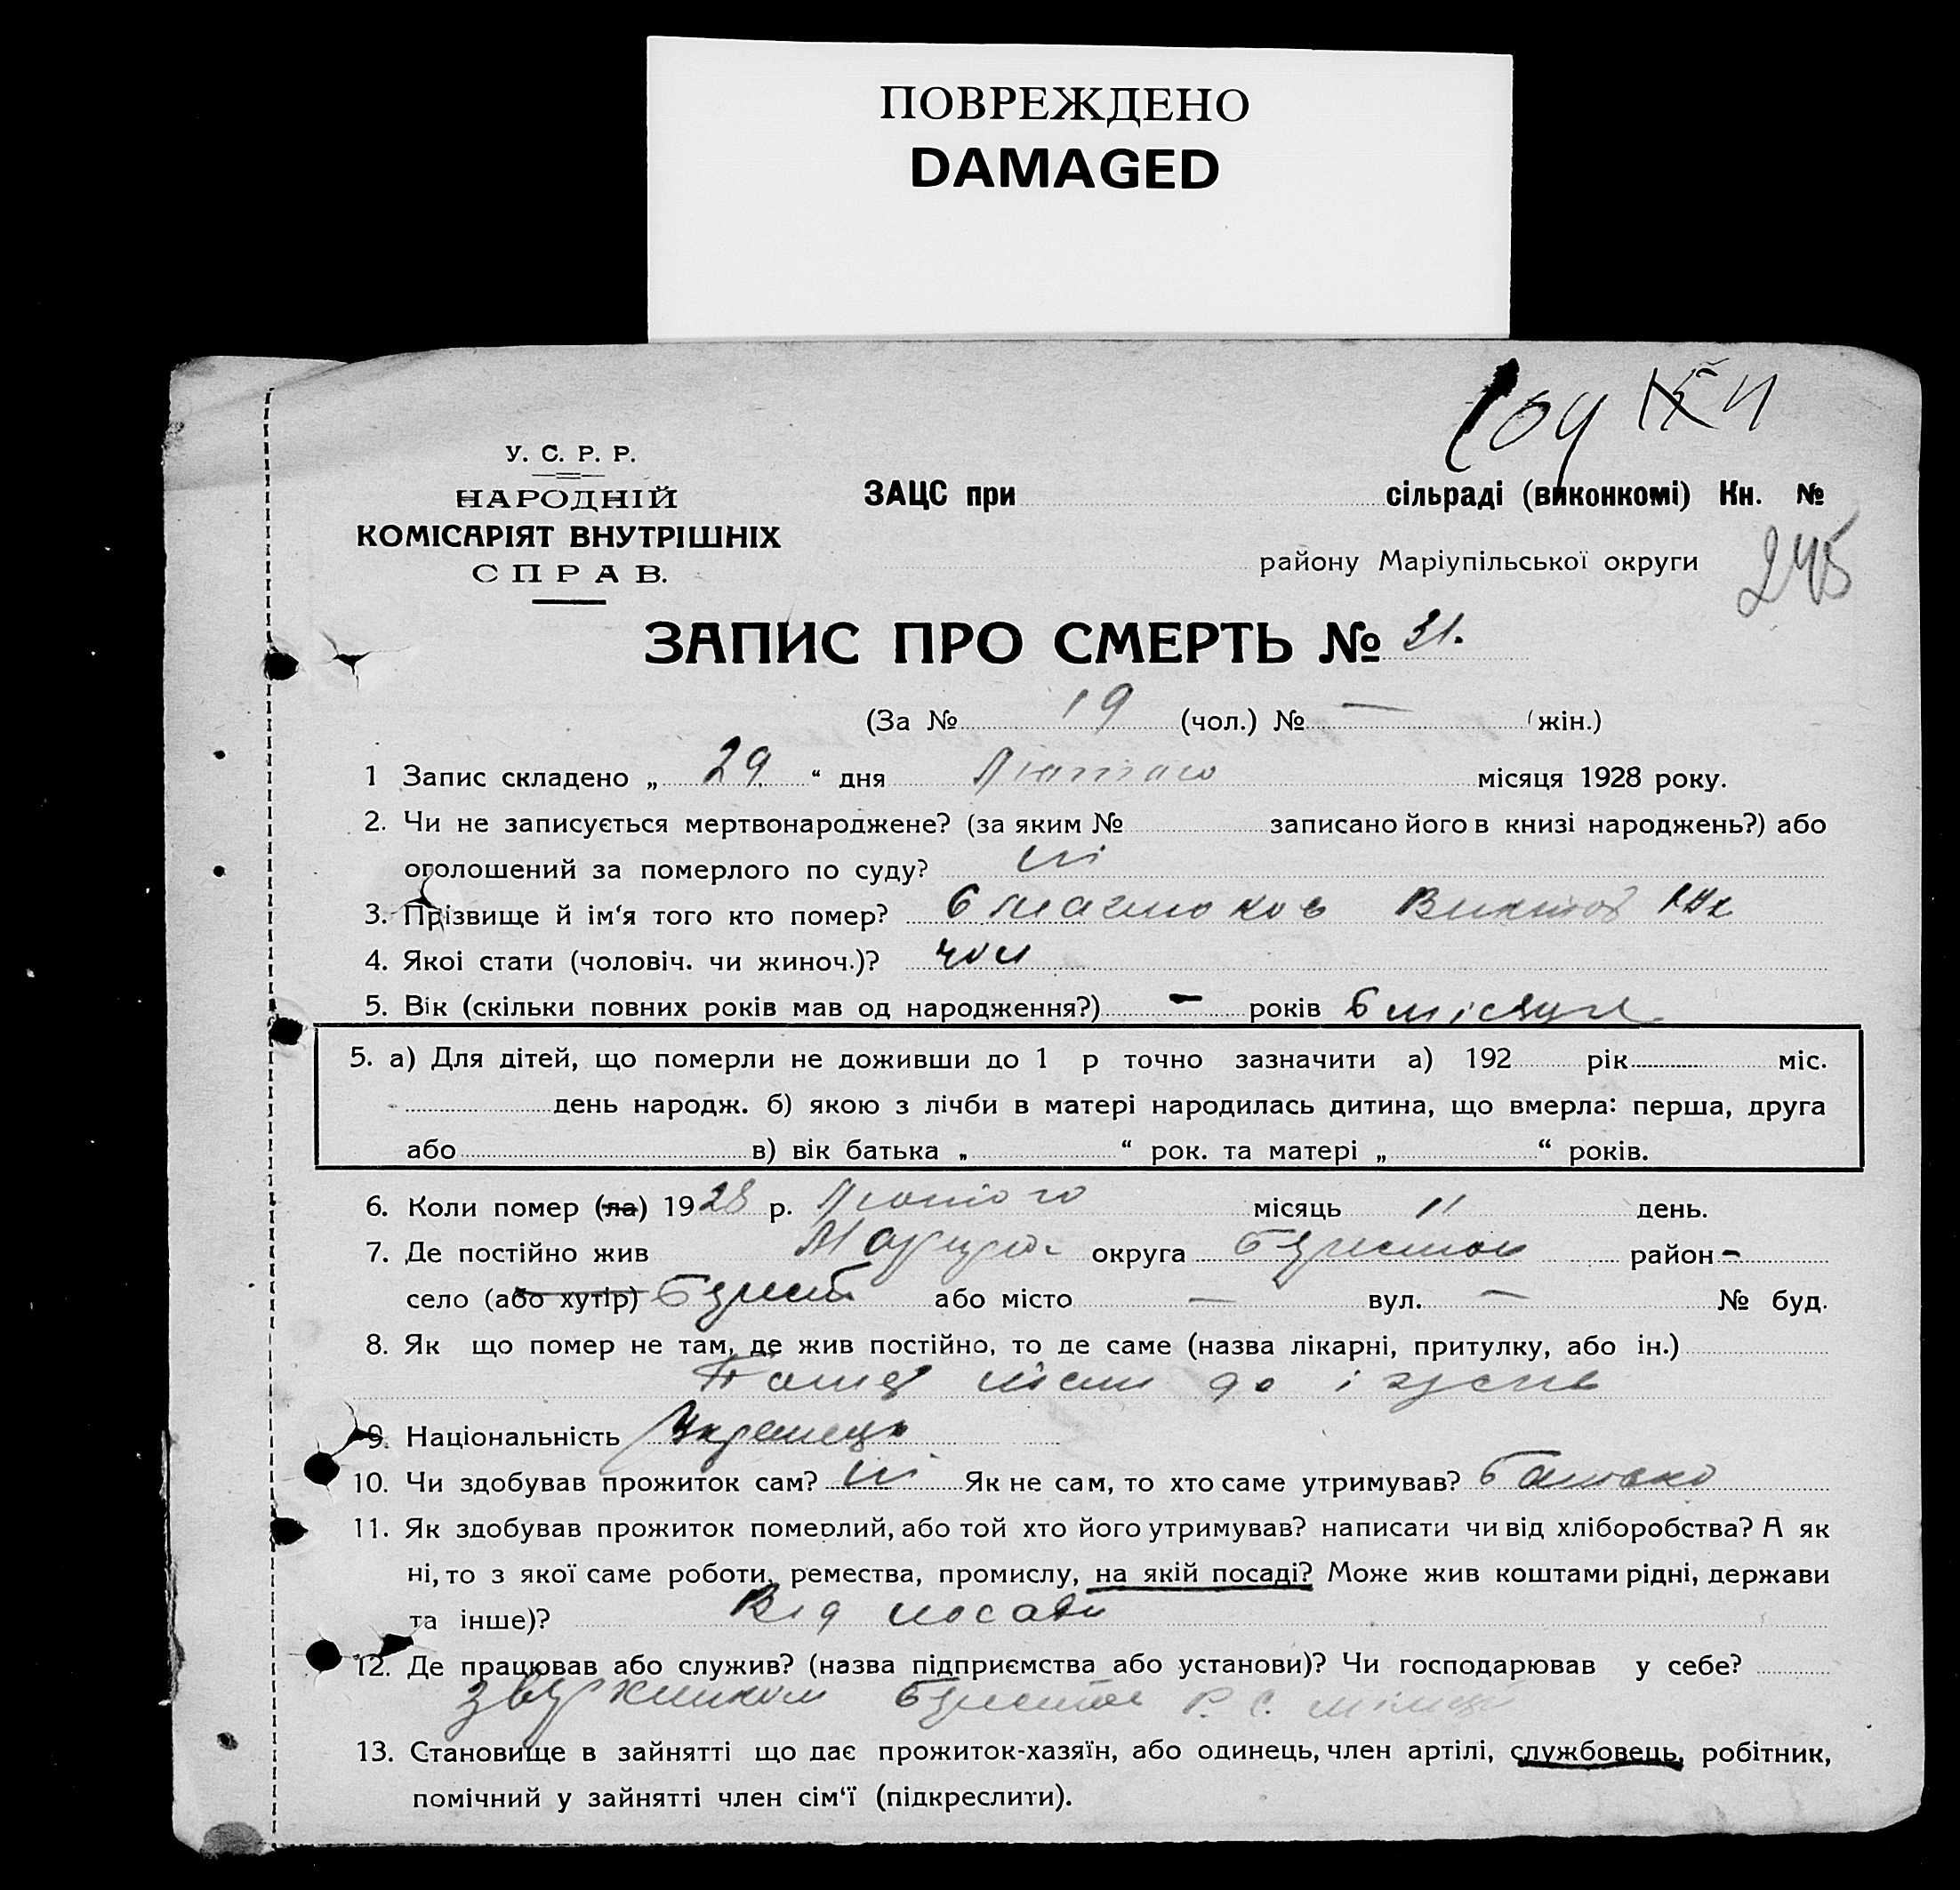 ПОВРЕЖДЕНО
DAMAGED
109
У. С. Р. Р.
НАРОДНІЙ
КОМІСАРІЯТ ВНУТРІШНІХ
СПРАВ.
ЗАЦС при сільраді (виконкомі) Кн. №
району Маріупільської округи
245
ЗАПИС ПРО СМЕРТЬ № 31.
(За № 19 (чол.) № — (жін.)
1 Запис складено „ 29 “ дня Лютого місяця 1928 року.
2. Чи не записується мертвонароджене? (за яким № записано його в книзі народжень?) або
оголошений за померлого по суду? ні
3. Прізвище й ім‘я того хто помер?
4. Якоі стати (чоловіч. чи жиноч.)? чол
5. Вік (скільки повних років мав од народження?) — років 6 місяців
5. а) Для дітей, що померли не доживши до 1 р точно зазначити а) 192 рік міс.
день народж. б) якою з лічби в матері народилась дитина, що вмерла: перша, друга
або в) вік батька „ “ рок. та матері „ “ років.
6. Коли помер (ла) 1928 р. Лютого місяць 11 день.
7. Де постійно жив Маріупол. округа район —
село (або хутір) або місто — вул. — № буд.
8. Як що помер не там, де жив постійно, то де саме (назва лікарні, притулку, або ін.)
9. Національність Українець
10. Чи здобував прожиток сам? ні Як не сам, то хто саме утримував? батько
11. Як здобував прожиток померлий, або той хто його утримував? написати чи від хліборобства? А як
ні, то з якої саме роботи, ремества, промислу, на якій посаді? Може жив коштами рідні, держави
та інше)? Від посади
12. Де працював або служив? (назва підприємства або установи)? Чи господарював у себе?
13. Становище в зайнятті що дає прожиток-хазяїн, або одинець, член артілі, службовець, робітник,
помічний у зайнятті член сім‘ї (підкреслити).